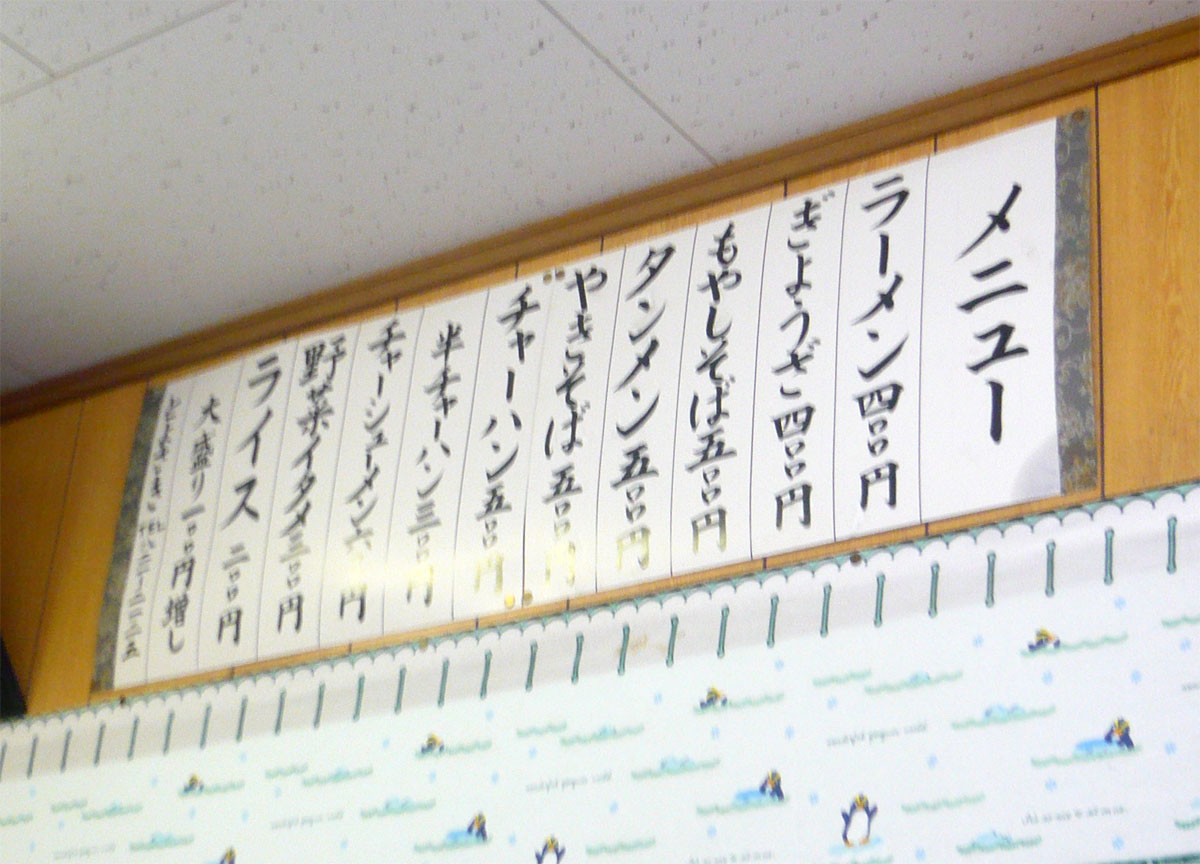 メニュー
ラーメン四〇〇円
ぎょうざ四〇〇円
もやしそば五〇〇円
タンメン五〇〇円
やきそば五〇〇円
チャーハン五〇〇円
半チャーハン三〇〇円
チャーシューメン六〇〇円
野菜イタメ三〇〇円
ライス二〇〇円
大盛り一〇〇円増し